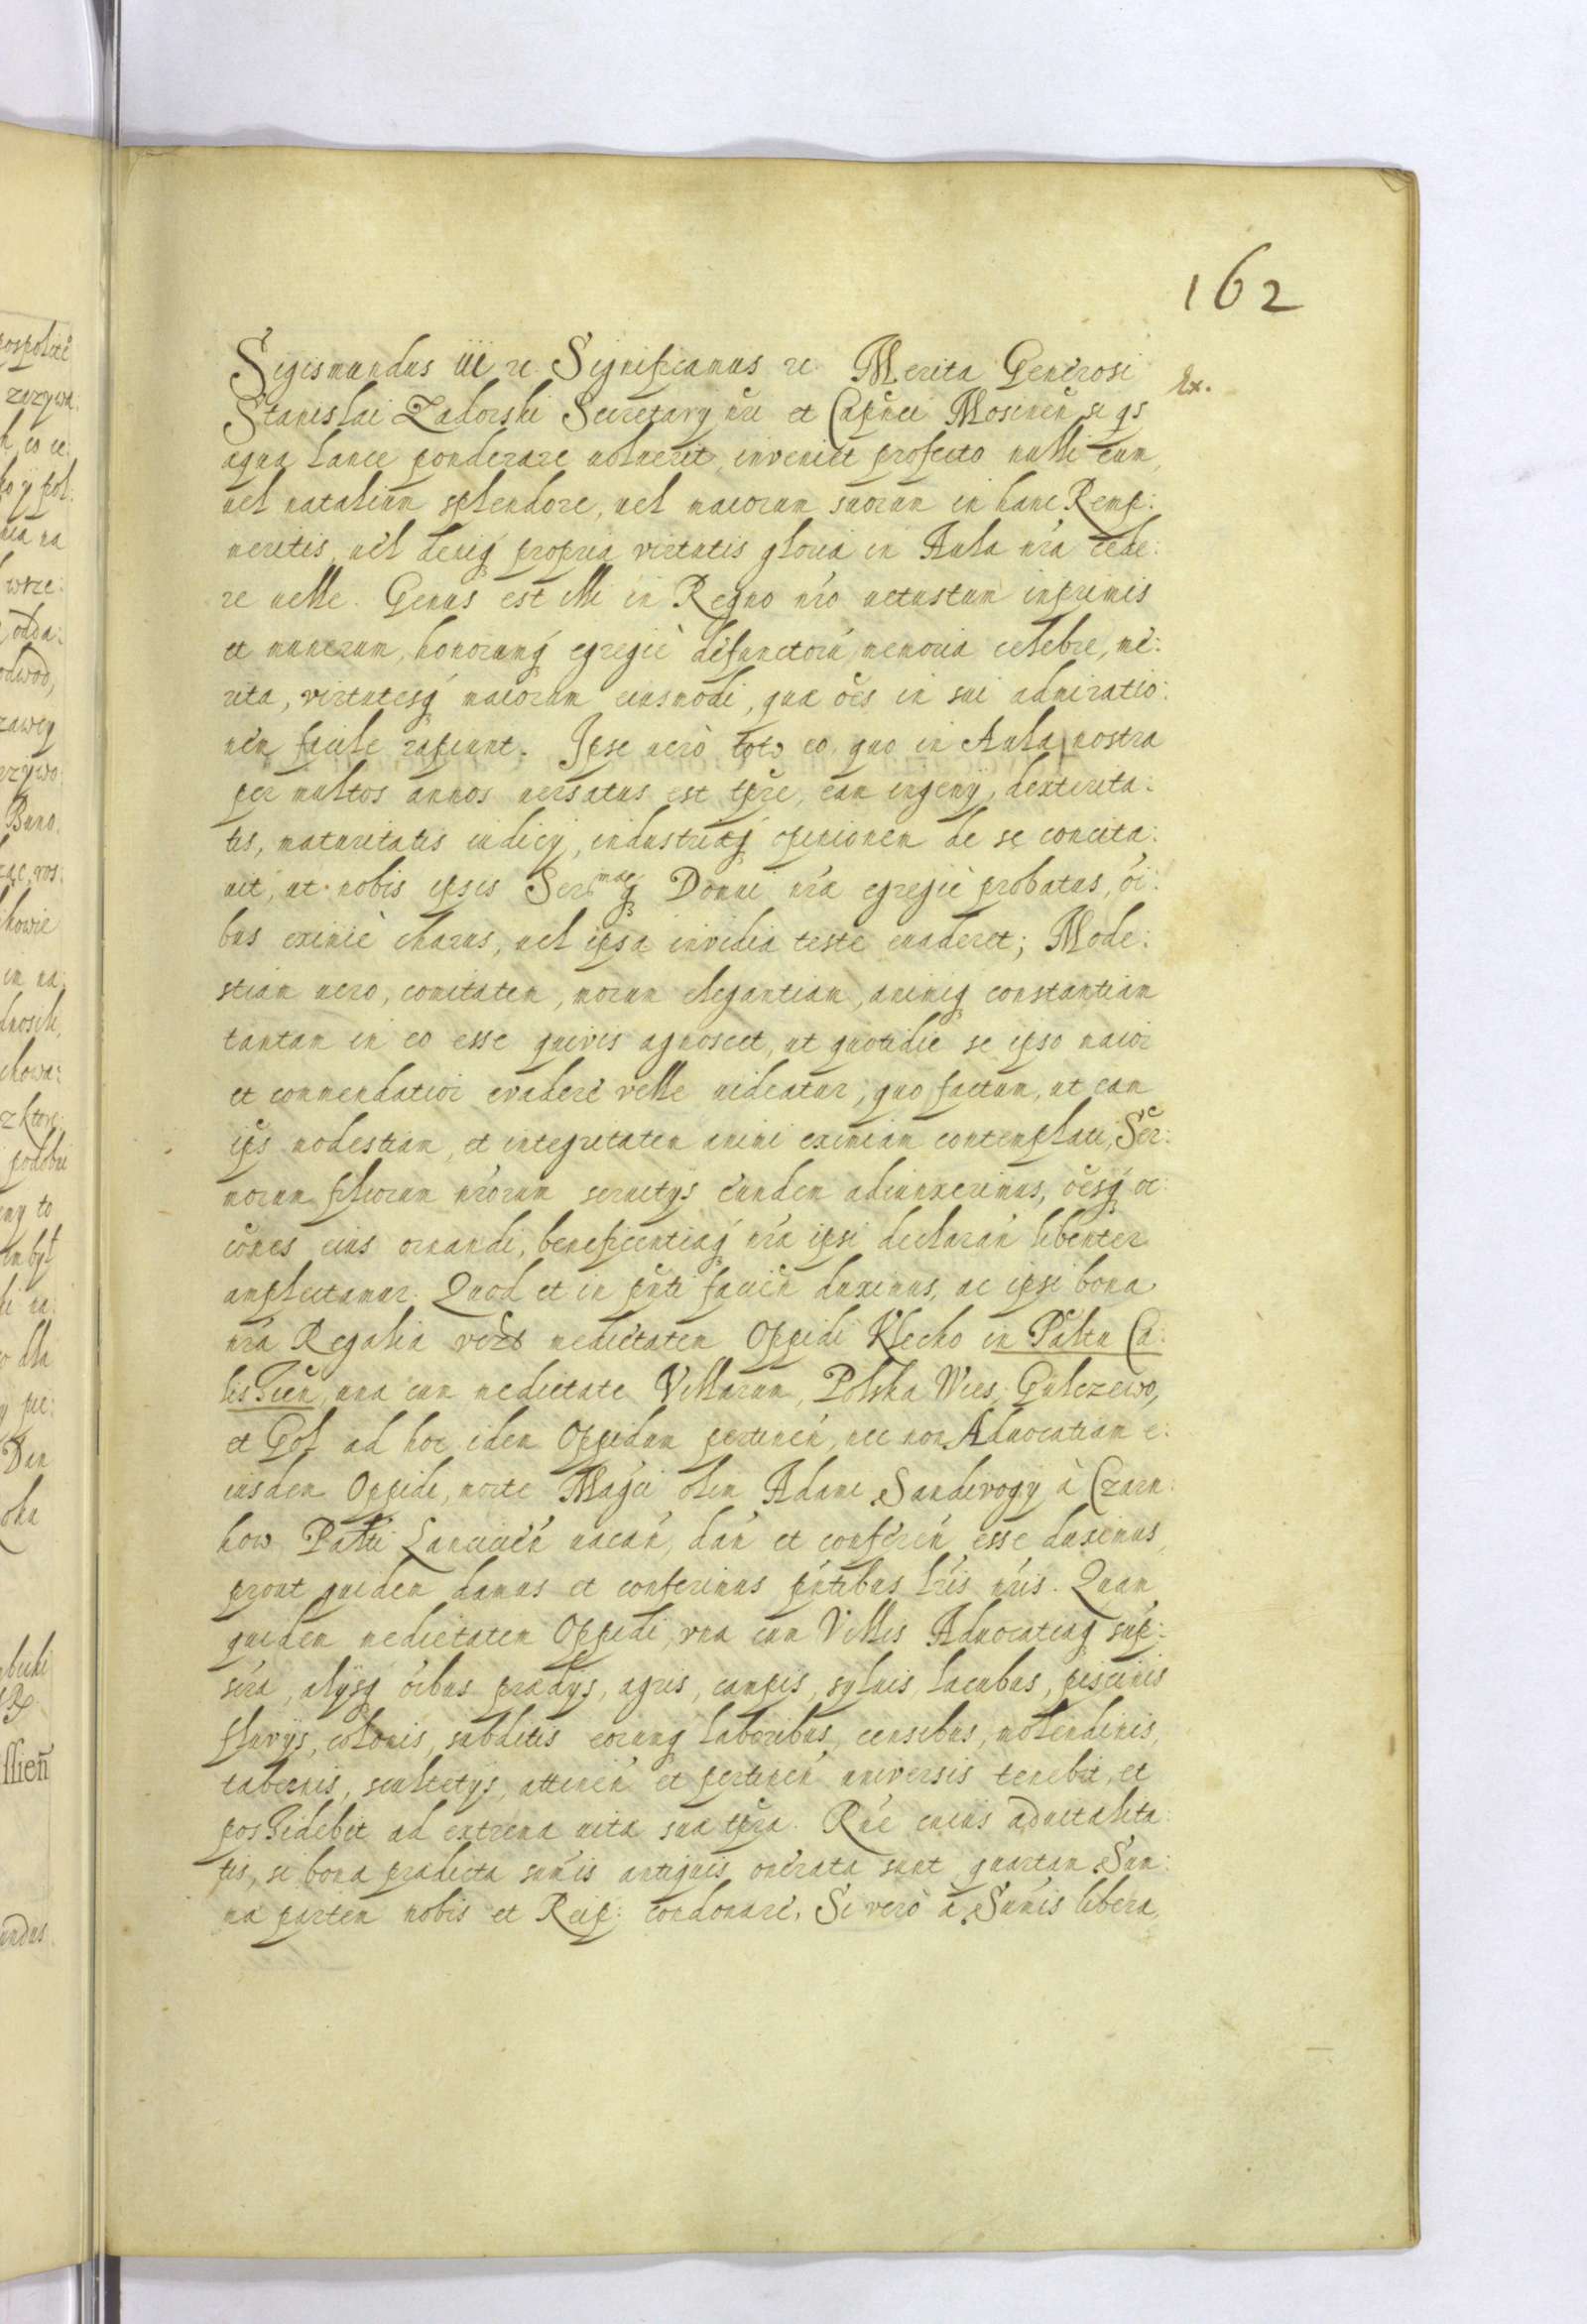 162
Sigismundus iii rc. Significamus rc. Merita Generosi
Ex.
Stanislai Zadorski Secretarÿ nři et Capñei Mosinen̄ si qs
aequa lance ponderare uoluerit, inveniet profecto nulli eum,
uel natalium splendore, uel maiorum suorum in hanc Remp:
meritis, uel deniq propria virtutis gloria in Aula nra cede:
re uelle. Genus est illi in Regno nro uetustum inprimis
et munerum, honorumq egregiè defunctorú memoria celebre, me:
rita, virtutesq maiorum eiusmodi, quae oēs in sui admiratio:
nem facile rapiunt. Ipse uerò toto eo quo in Aula nostra
per multos annos uersatus est tpře, eam ingenÿ, dexterita:
tis, maturitatis iudicÿ, industriaeq opinionem de se concita:
uit, ut nobis ipsis Sermaeq Domui nrae egregiè probatus, oi:
bus eximiè charus, uel ipsa invidia teste euaderet; Mode:
stiam uero, comitatem, morum elegantiam, animiq constantiam
tantam in eo esse quivis agnoscet, ut quotidie se ipso maior
et commendatior evadere velle uideatur; quo factum, ut eam
ips modestiam, et integritatem animi eximiam contemplati, Ser:
morum filiorum nrorum seruitÿs eundem adiunxerimus, oesq oc:
cones eius ornandi, beneficentiaeq nrae ipsi declaran libenter
amplectamur. Quod et in pnti facien duximus, ac ipsi bona
nra Regalia medietatem Oppidi Klecko in Paltu Ca:
lissien, una cum medietate Villarum, Polska Wies, Gulczewo,
et Pol ad hoc idem Oppidum pertinen, nec non Aduocatiam e:
iusdem Oppidi, morte Magci olim Adami Sandivogÿ à Czarn:
kow Palti Lancicien uacan, dan et conferen esse duximus,
prout quidem damus et conferimus pntibus lris nris. Quam
quidem medietatem Oppidi, vna cum Villis Aduocatiaq sup:
scra, alÿsq oibus praedÿs, agris, campis, syluis, lacubus, piscinis
fluvÿs, colonis, subditis eorumq laboribus, censibus, molendinis,
tabernis, scultetÿs, attinen et pertinen universis tenebit, et
possidebit ad extrema uitae suae tpra. Rne cuius aduitalita:
tis, si bona praedicta sumis antiquis onerata sunt quartam Sum:
mae partem nobis et Reip: condonare, Si verò à Sumis libera,